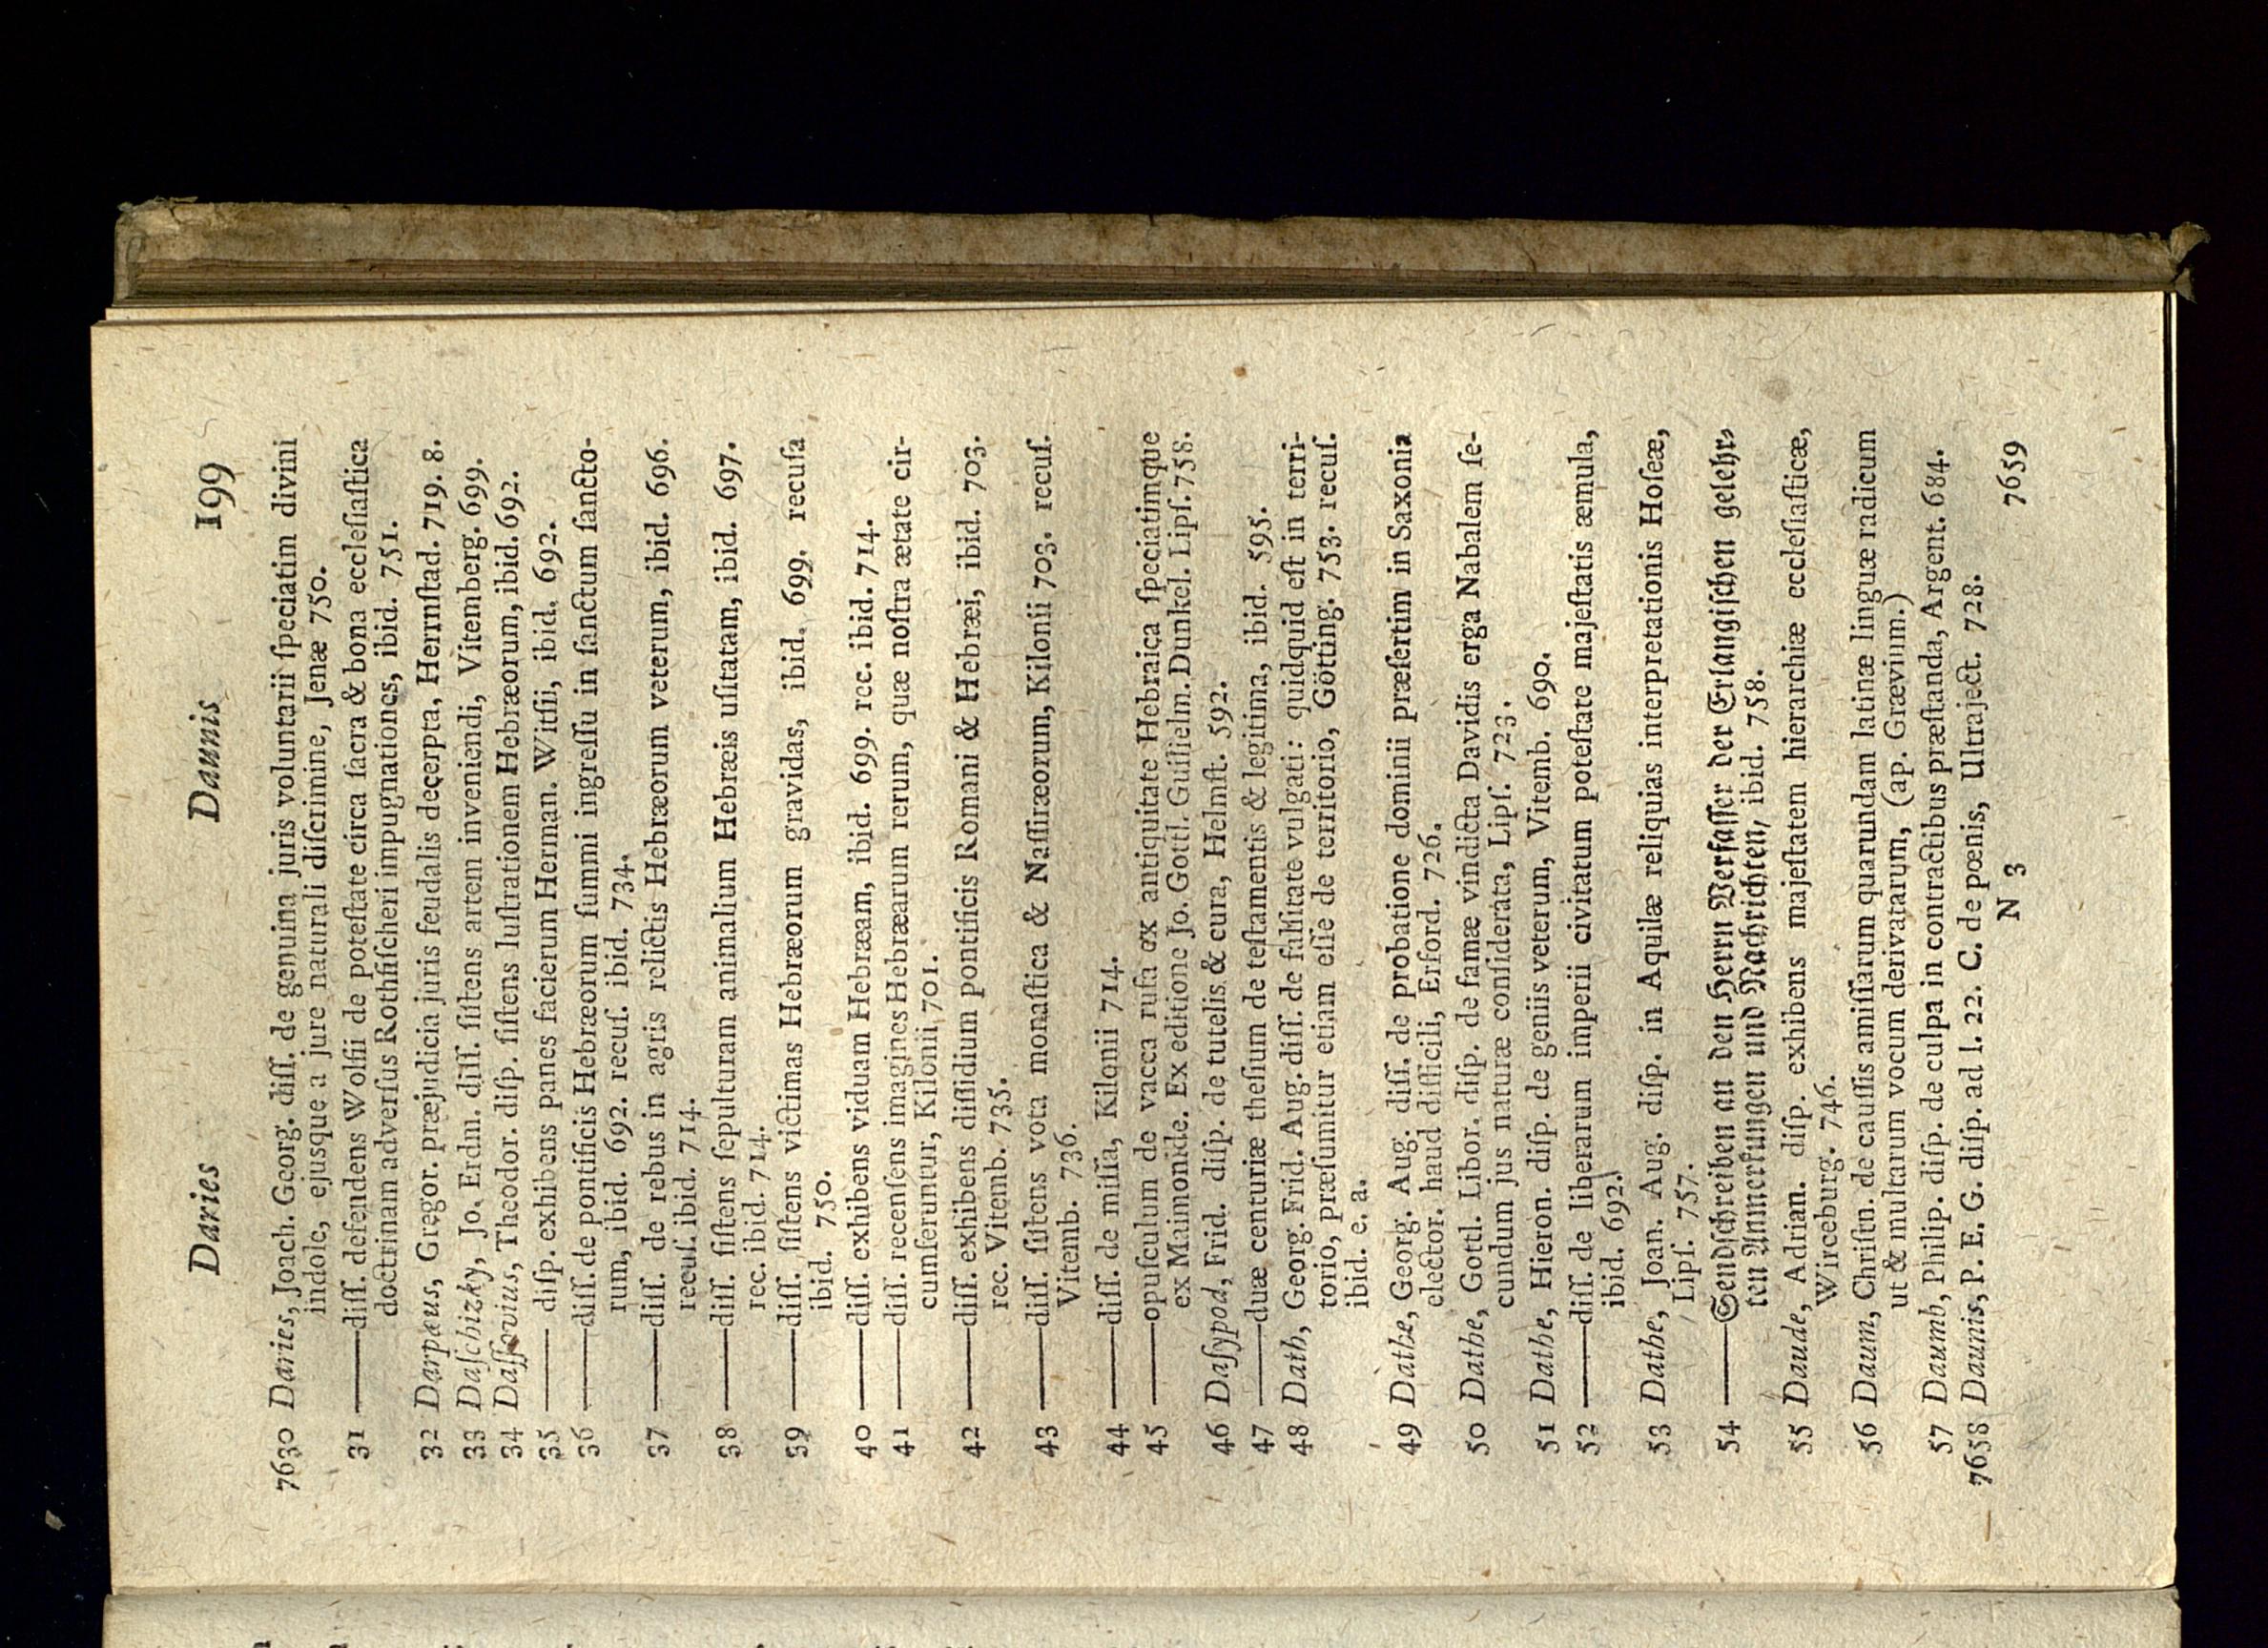 Daries Daunis 199
7630 Daries, Joach. Georg. diſſ. de genuina juris voluntarii ſpeciatim divini
indole, ejusque a jure naturali diſcrimine, Jenæ 750.
31 —— diſſ. defendens Wolfii de poteſtate circa ſacra & bona eccleſiaſtica
doctrinam adverſus Rothfiſcheri impugnationes, ibid. 751.
32 Darpæus, Gregor. præjudicia juris feudalis decerpta, Herrnſtad. 719. 8.
33 Daſchizky, Jo. Erdm. diſſ. ſiſtens artem inveniendi, Vitemberg. 699.
34 Daſſovius, Theodor. diſp. ſiſtens luſtrationem Hebræorum, ibid. 692.
35 —— diſp. exhibens panes facierum Herman. Witſii, ibid. 692.
36 —— diſſ. de pontificis Hebræorum ſummi ingreſſu in ſanctum ſancto-
rum, ibid. 692. recuſ. ibid. 734.
37 —— diſſ. de rebus in agris relictis Hebræorum veterum, ibid. 696.
recuſ. ibid. 714.
38 —— diſſ. ſiſtens ſepulturam animalium Hebræis uſitatam, ibid. 697.
rec. ibid. 714.
39 —— diſſ. ſiſtens victimas Hebræorum gravidas, ibid. 699. recuſa
ibid. 750.
40 —— diſſ. exhibens viduam Hebræam, ibid. 699. rec. ibid. 714.
41 —— diſſ. recenſens imagines Hebræarum rerum, quæ noſtra ætate cir-
cumferuntur, Kilonii 701.
42 —— diſſ. exhibens diſſidium pontificis Romani & Hebræi, ibid. 703.
rec. Vitemb. 735.
43 —— diſſ. ſiſtens vota monaſtica & Naſiræorum, Kilonii 703. recuſ.
Vitemb. 736.
44 —— diſſ. de miſſa, Kilonii 714.
45 —— opuſculum de vacca rufa ex antiquitate Hebraica ſpeciatimque
ex Maimonide. Ex editione Jo. Gottl. Guilielm. Dunkel. Lipſ. 758.
46 Daſypod, Frid. diſp. de tutelis & cura, Helmſt. 592.
47 —— duæ centuriæ theſium de teſtamentis & legitima, ibid. 595.
48 Dath, Georg. Frid. Aug. diſſ. de falſitate vulgati: quidquid eſt in terri-
torio, præſumitur etiam eſſe de territorio, Götting. 753. recuſ.
ibid. e. a.
49 Dathe, Georg. Aug. diſſ. de probatione dominii præſertim in Saxonia
elector. haud difficili, Erford. 726.
50 Dathe, Gottl. Libor. diſp. de famæ vindicta Davidis erga Nabalem ſe-
cundum jus naturæ conſiderata, Lipſ. 723.
51 Dathe, Hieron. diſp. de geniis veterum, Vitemb. 690.
52 —— diſſ. de liberarum imperii civitatum poteſtate majeſtatis æmula,
ibid. 692.
53 Dathe, Joan. Aug. diſp. in Aquilæ reliquias interpretationis Hoſeæ,
Lipſ. 757.
54 —— Sendſchreiben an den Herrn Verfaſſer der Erlangiſchen gelehr-
ten Anmerkungen und Nachrichten, ibid. 758.
55 Daude, Adrian. diſp. exhibens majeſtatem hierarchiæ eccleſiaſticæ,
Wirceburg. 746.
56 Daum, Chriſtn. de cauſſis amiſſarum quarundam latinæ linguæ radicum
ut & multarum vocum derivatarum, (ap. Grævium.)
57 Daumb, Philip. diſp. de culpa in contractibus præſtanda, Argent. 684.
7658 Daunis, P. E. G. diſp. ad l. 22. C. de pœnis, Ultraject. 728.
N 3 7659